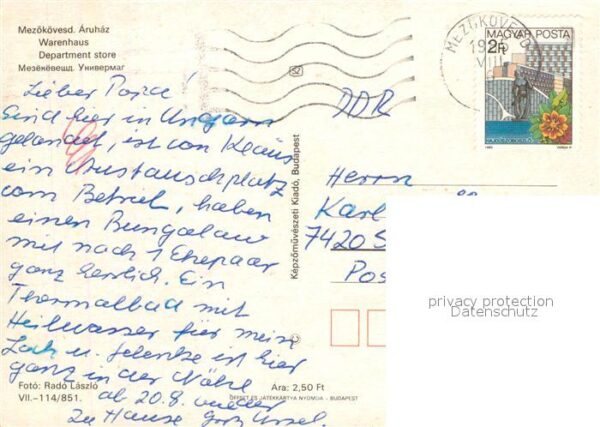 Mezőkövesd. Áruház
Warenhaus
Department store
Мезёкёвешд. Универмаг
Lieber Papa!
Sind hier in Ungarn
gelandet, ist von Klaus
ein Austauschplatz
vom Betrieb, haben
einen Bungalow
mit noch 1 Ehepaar
ganz herrlich. Ein
Thermalbad mit
Heilwasser für meine
u. Gelenke ist hier
ganz in der Nähe
ab 20.8. wieder
zu Hause Gruß Ursel.
Fotó: Radó László
VII.–114/851.
Ára: 2,50 Ft
OFFSET ÉS JÁTÉKKÁRTYA NYOMDA – BUDAPEST
Képzőművészeti Kiadó, Budapest
SZ
MEZŐKÖVESD
VIII
MAGYAR POSTA
2Ft
HAJDÚSZOBOSZLÓ
DDR
Herrn
Karl
7420 S
Pos
privacy protection
Datenschutz